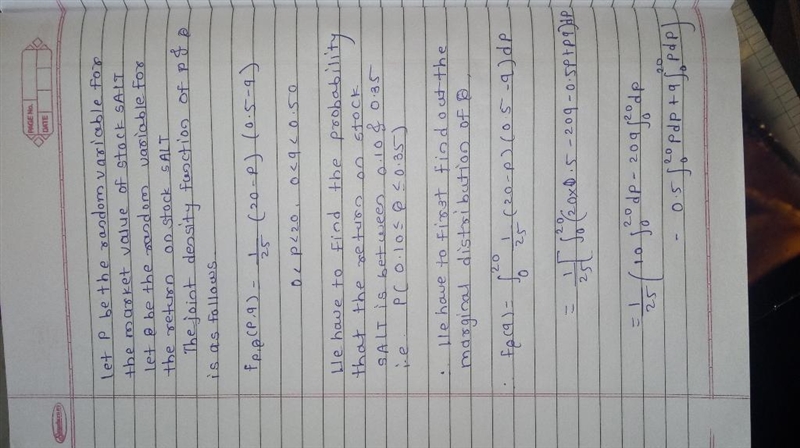 PAGE No.
DATE
Let P be the random variable for
the market value of stock SALT
Let Q be the random variable for
the return on stock SALT
The joint density function of P & Q
is as follows
f_{P,Q}(P,q) = 1/25 (20-P) (0.5-q)
0<P<20, 0<q<0.50
We have to find the probability
that the return on stock
SALT is between 0.10 & 0.35
i.e. P(0.10≤Q≤0.35)
∴ We have to first find out the
marginal distribution of Q,
∴ f_Q(q) = ∫_0^20 1/25 (20-P) (0.5-q) dP
= 1/25 [∫_0^20 (20×0.5-20q-0.5P+Pq) dP
= 1/25 (10 ∫_0^20 dP - 20q ∫_0^20 dP
- 0.5 ∫_0^20 P dP + q ∫_0^20 P dP]